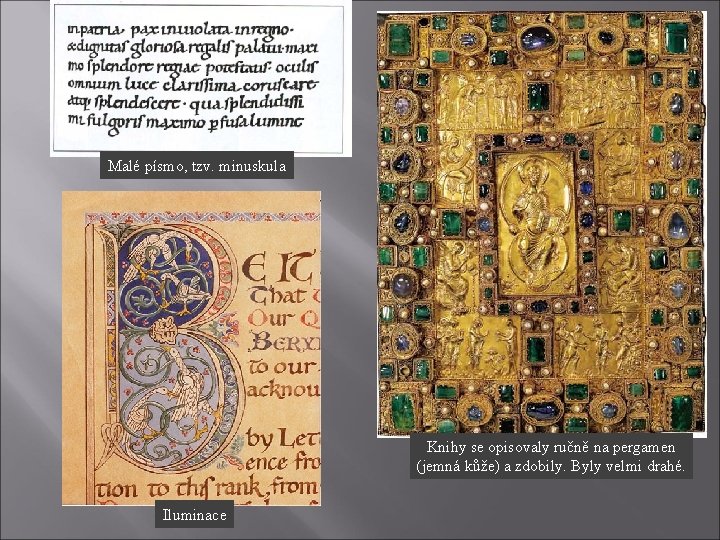 inpatria, pax inuiolata inregno·
&dignitas gloriosa regalis palatii· maxi
mo splendore regiae potestatis· oculis
omnium luce clarissima, coruscare
atq; splendescere· qua splendidissi
mi fulgoris maximo pfusa lumine
Malé písmo, tzv. minuskula
BE IT
That
Our
BERY
to our
acknou
by Lett
ence fro
tion to this rank, from
Iluminace
Knihy se opisovaly ručně na pergamen
(jemná kůže) a zdobily. Byly velmi drahé.